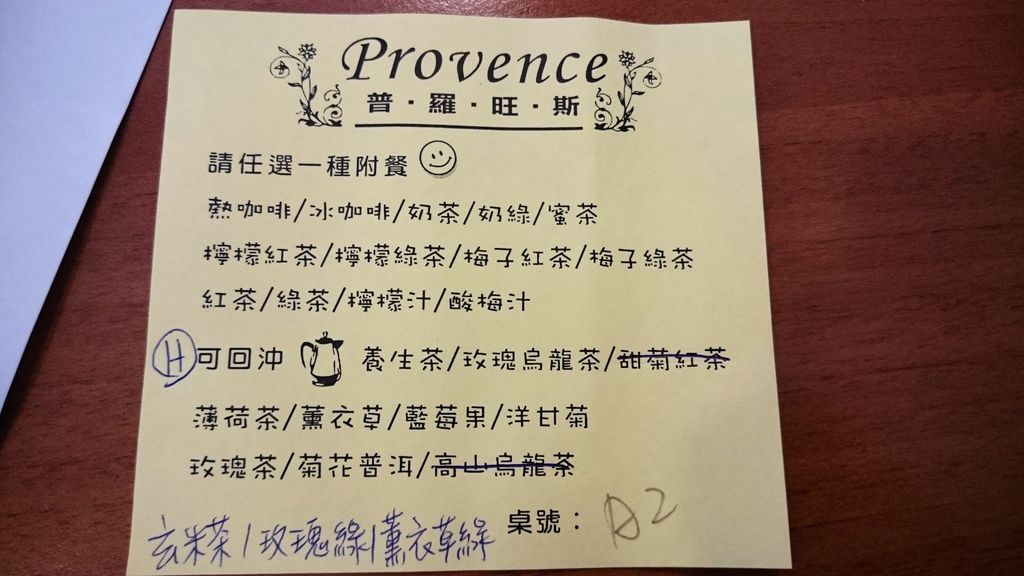 Provence
普·羅·旺·斯
請任選一種附餐
熱咖啡/冰咖啡/奶茶/奶綠/蜜茶
檸檬紅茶/檸檬綠茶/梅子紅茶/梅子綠茶
紅茶/綠茶/檸檬汁/酸梅汁
H 可回沖 養生茶/玫瑰烏龍茶/甜菊紅茶
薄荷茶/薰衣草/藍莓果/洋甘菊
玫瑰茶/菊花普洱/高山烏龍茶
玄米茶/玫瑰綠/薰衣草綠
桌號： A2